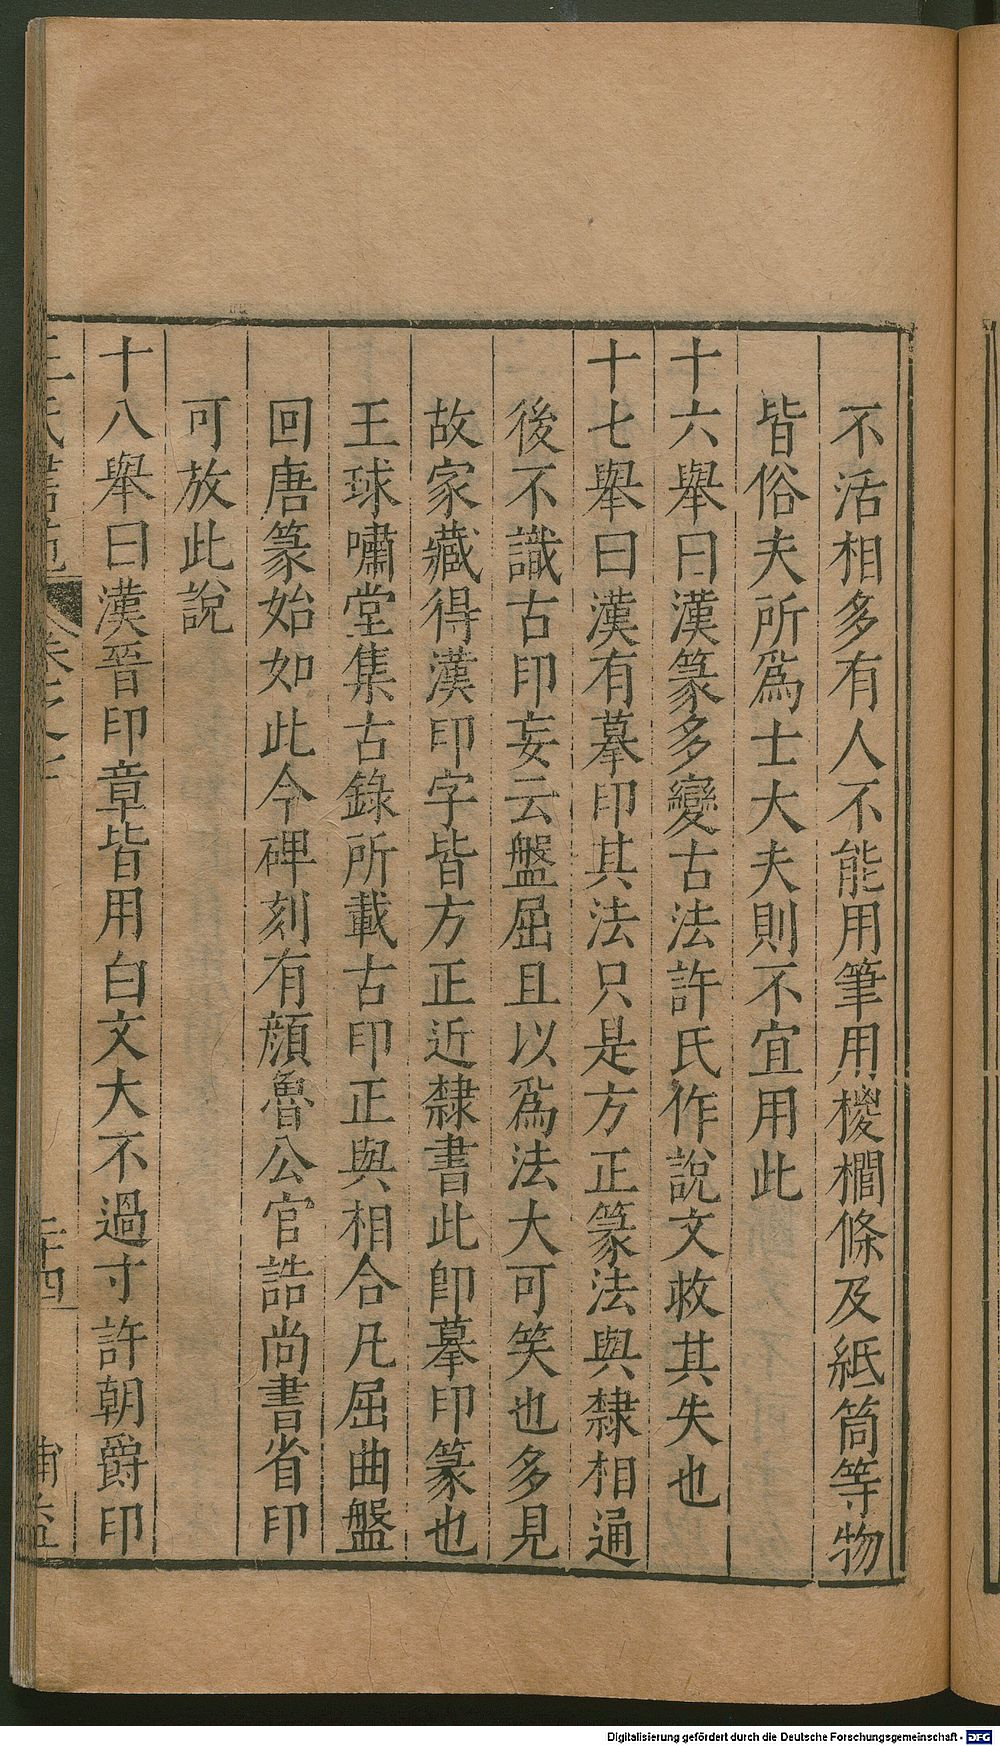 不活相多有人不能用筆用椶櫚條及紙筒等物
皆俗夫所爲士大夫則不宜用此
十六舉曰漢篆多變古法許氏作說文救其失也
十七舉曰漢有摹印其法只是方正篆法與隸相通
後不識古印妄云盤屈且以爲法大可笑也多見
故家藏得漢印字皆方正近隸書此卽摹印篆也
王球嘯堂集古錄所載古印正與相合凡屈曲盤
回唐篆始如此今碑刻有顔魯公官誥尚書省印
可放此說
十八舉曰漢晉印章皆用白文大不過寸許朝爵印
王氏書苑 卷之 二十四 補益
Digitalisierung gefördert durch die Deutsche Forschungsgemeinschaft - DFG